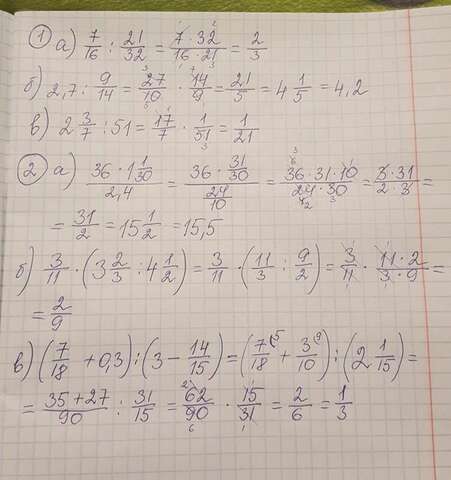 1 а) 7/16 : 21/32 = 7·32/16·21 = 2/3
б) 2,7 : 9/14 = 27/10 · 14/9 = 21/5 = 4 1/5 = 4,2
в) 2 3/7 : 51 = 17/7 · 1/51 = 1/21
2 а) 36·1 1/30 / 2,4 = 36· 31/30 / 24/10 = 36·31·10 / 24·30 = 3·31 / 2·3 =
= 31/2 = 15 1/2 = 15,5
б) 3/11 · (3 2/3 : 4 1/2) = 3/11 · (11/3 : 9/2) = 3/11 · 11·2/3·9 =
= 2/9
в) (7/18 + 0,3) : (3 − 14/15) = (7/18 + 3/10) : (2 1/15) =
= 35+27/90 : 31/15 = 62/90 · 15/31 = 2/6 = 1/3